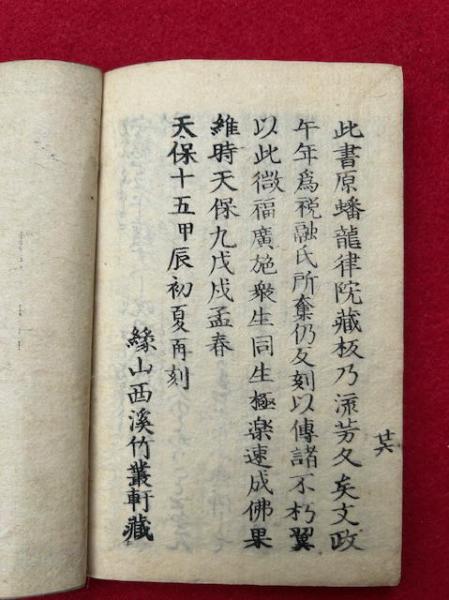 此書原蟠龍律院藏板乃流芳久矣文政
午年爲祝融氏所奪仍又刻以傳諸不朽翼
以此微福廣施衆生同生極楽速成佛果
維時天保九戊戌孟春
天保十五甲辰初夏再刻
縁山西溪竹叢軒藏
廿六